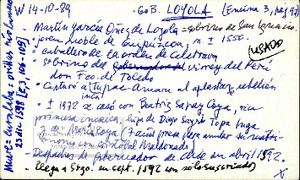 W 14-10-84 GoB. LOYOLA (Encina 3, pág 49)
• Martín García Oñez de Loyola - sobrino de San Ignacio
• noble de Guipúzcoa, n ± 1550.
• caballero de la orden de Calatrava
• sobrino del virrey del Perú
don Fco. de Toledo
• Capturó a Tupac-Amaru al aplastar rebelión
inca
• ± 1592 se casó con Beatriz Sayri Coya, rica
princesa incaica, hija de Diego Sayri Tupa Inga
y de María Coya
con Cristóbal Maldonado)
• Despachos de gobernador de Chile en abril 1592.
Llega a Stgo. en sept. 1592 con sólo
USADO
Muerte Curalaba
23 dic 1598